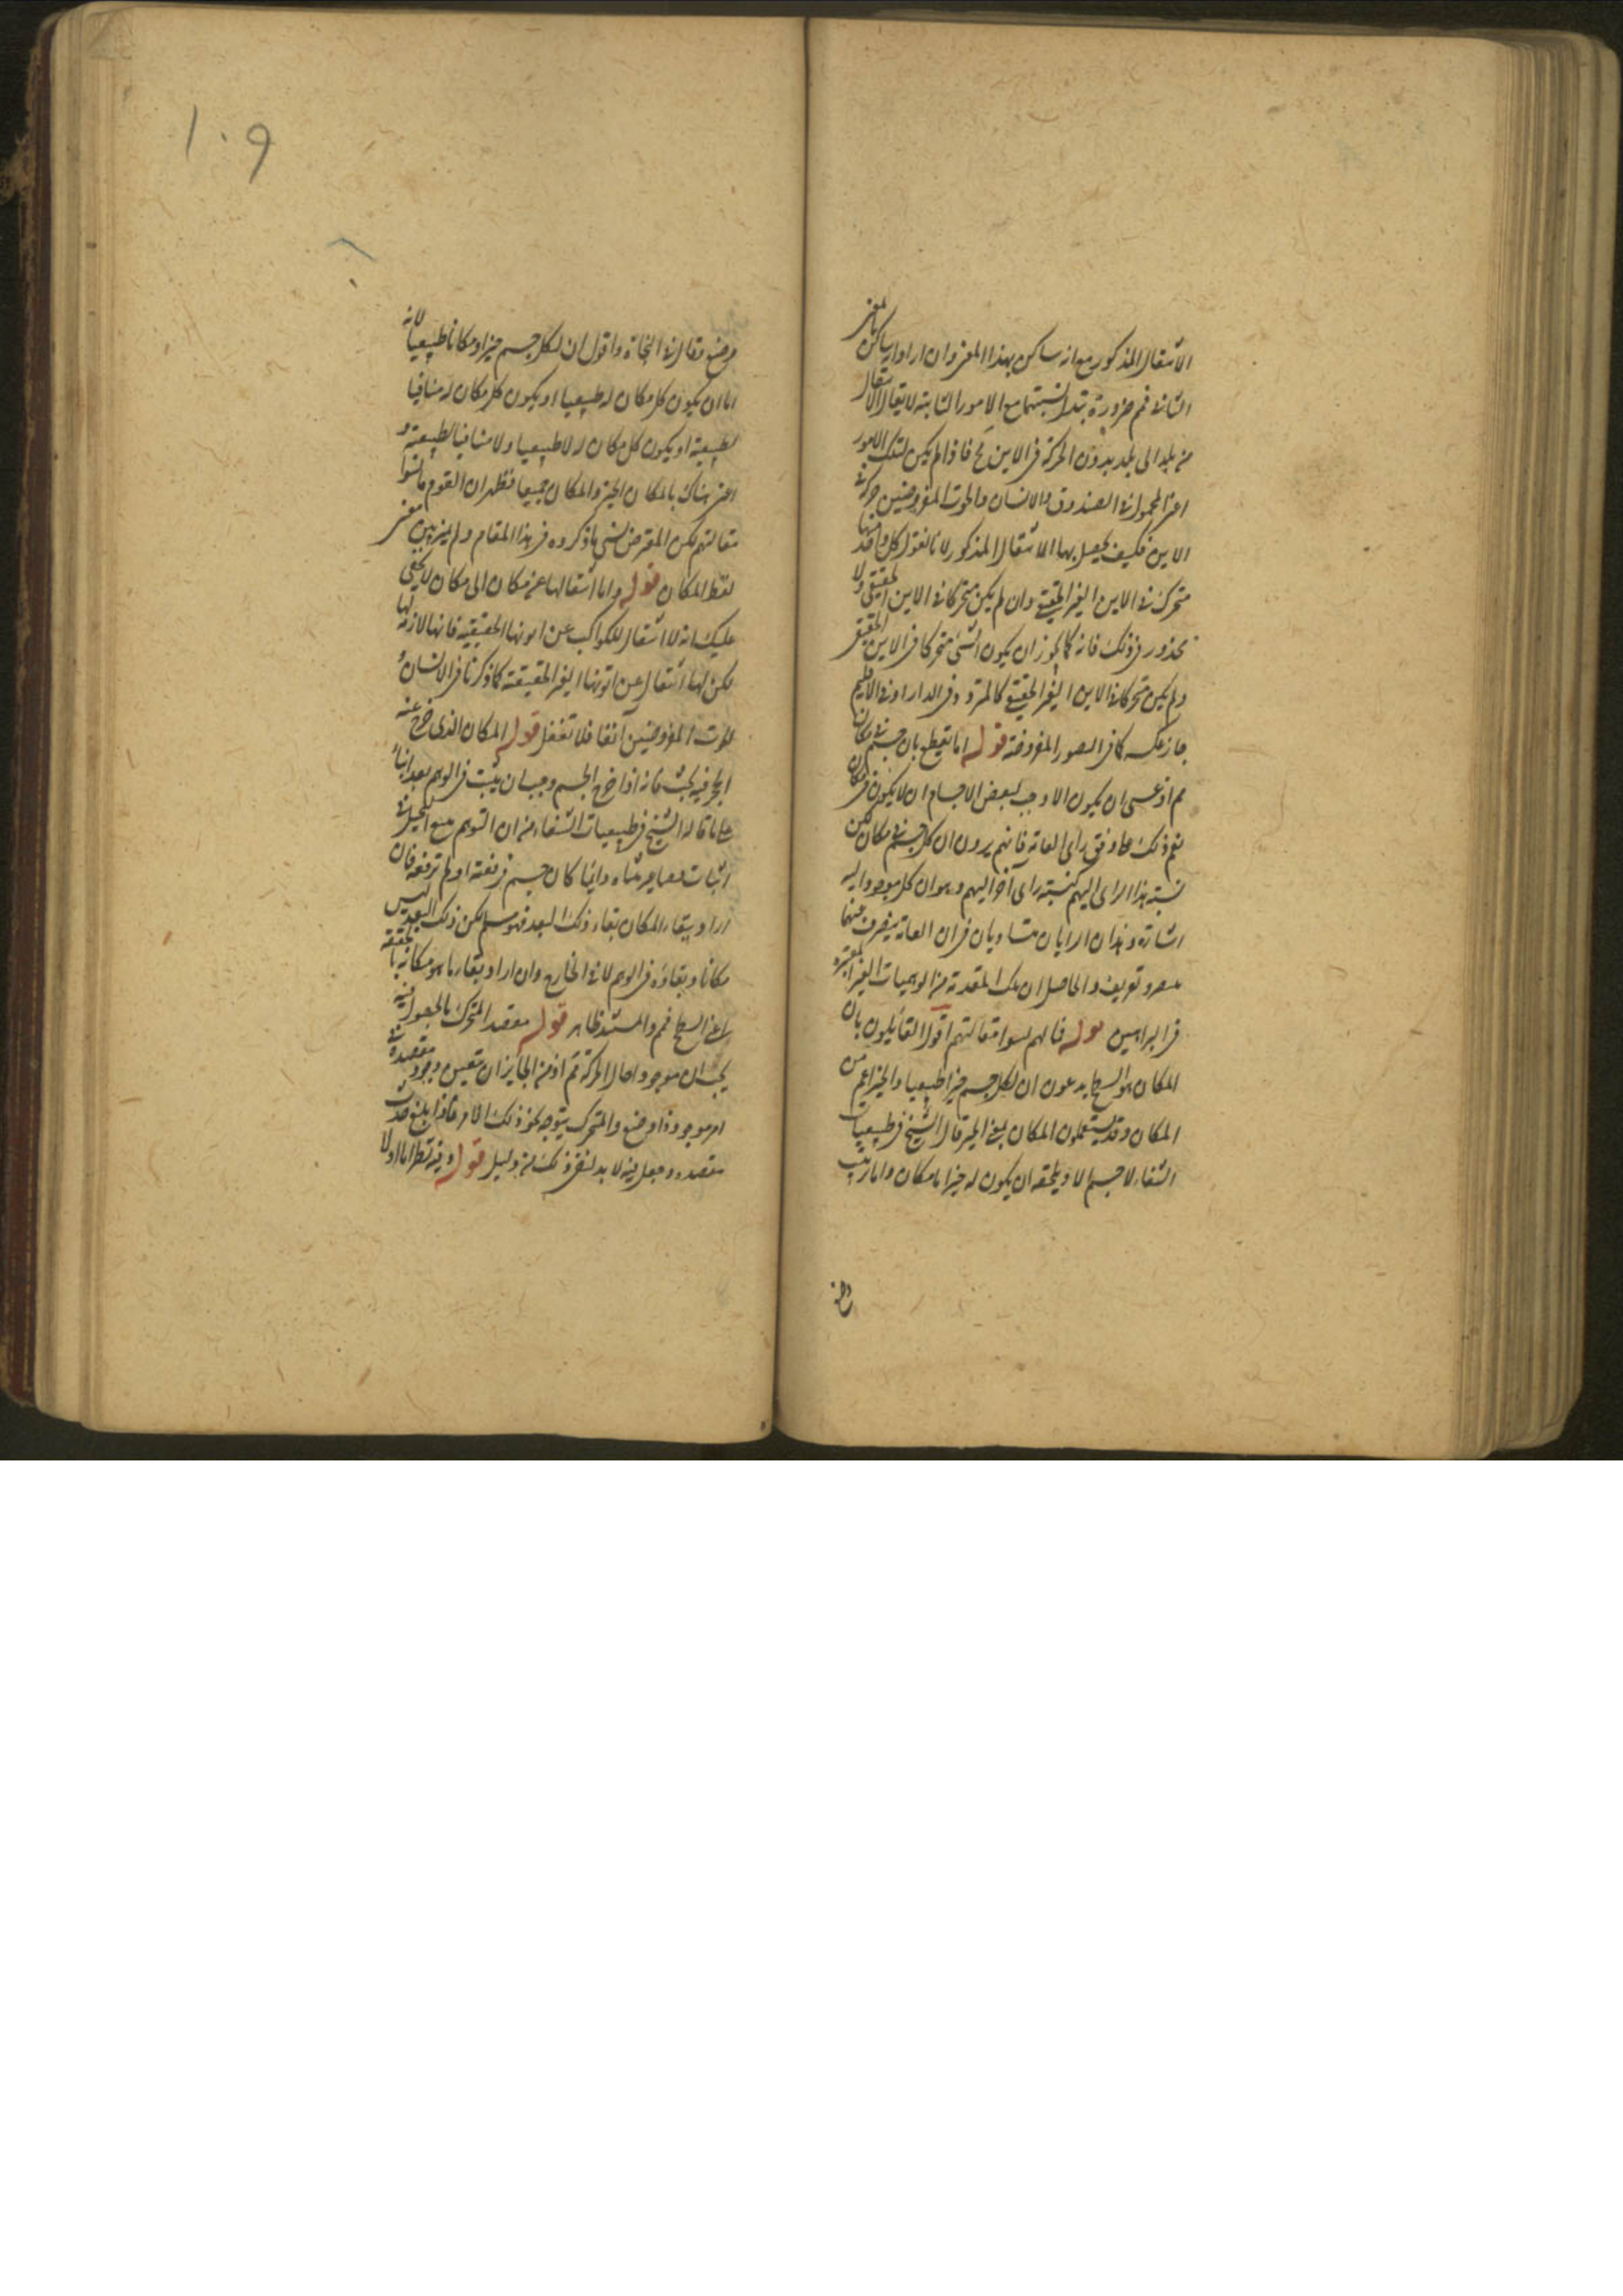 الانتقال المذكور مع انه ساكن بهذا المعنى وان اراد انه ساكن بالمعنى
الثانى فم ضرورة تبدل نسبتهما مع الامور الثابتة لا يقال الانتقال
من بلد الى بلد بدون الحركة فى الاين مح فاذا لم يكن لتلك الامور
اعنى المحمول فى الصندوق والانسان والحوت المفروضين حركة فى
الاين فكيف يحصل بها الانتقال المذكور لانا نقول كل واحد منها
متحرك فى الاين الغير الحقيقى وان لم يكن متحركا فى الاين الحقيقى ولا
محذور فى ذلك فانه كما يجوز ان يكون الشئ متحركا فى الاين الحقيقى
ولم يكن متحركا فى الاين الغير الحقيقى كالمتردد فى الدار او فى الاقليم
جاز عكسه كما فى الصور المفروضة قوله انا نقطع بان كل جسم فى مكان
مم اذ عسى ان يكون الاوجب لبعض الاجسام ان لا يكون فى مكان
نعم ذلك على وفق رأى العامة فانهم يرون ان كل جسم فى مكان لكن
نسبة هذا الراى اليهم كنسبة راى آخر اليهم وهو ان كل موجود اليه
اشارة وهذان الرايان متساويان فى ان العامة ينصرف عنهما
بتبصر وتعريف والحاصل ان تلك المقدمة من الوهميات الغير المعتبرة
فى البراهين قوله فما لهم نسوا مقالتهم اقول القائلون بان
المكان هو السطح يدعون ان لكل جسم حيزا طبيعيا والحيز اعم من
المكان وقد يستعملون المكان بمعنى الحيز قال الشيخ فى طبيعيات
الشفاء لا جسم الا ويلحقه ان يكون له حيز اما مكان واما ترتيب
وضع
وضع وقال فى النجاة واقول ان لكل جسم حيزا ومكانا طبيعيا لانه
اما ان يكون كل مكان له طبيعيا او يكون كل مكان له منافيا
لطبيعته او يكون كل مكان له لا طبيعيا ولا منافيا لطبيعته و
اعنى هناك بالمكان الحيز والمكان جميعا فظهر ان القوم ما نسوا
مقالتهم لكن المعترض نسى ما ذكروه فى هذا المقام ولم يميز بين معنى
لفظ المكان قوله واما انتقالها عن مكان الى مكان لا يخفى
عليك انه لا انتقال للكواكب عن ايونها الحقيقية فانها لازمة لها
لكن لها انتقال عن ايونها الغير الحقيقية كما ذكرنا فى الانسان و
الحوت المفروضين آنفا فلا تغفل قوله المكان الذى خرج عنه
الحجر فيه بحث فانه اذا خرج الجسم وجب ان يثبت فى الوهم بعد ثابتا
على ما قاله الشيخ فى طبيعيات الشفاء من ان التوهم مع التخيل فى
اثبات دائما كان جسم فرفعته او لم ترفعه فان
اراد ببقاء المكان بقاء ذلك البعد فهو مسلم لكن ذلك البعد ليس
مكانا وبقاؤه فى الوهم لا فى الخارج وان اراد بقاء ما هو مكانه بالحقيقة
اعنى السطح فمم والمستند ظاهر قوله مقصد المتحرك بالحصول فيه
يجب ان موجودا حال الحركة ثم اذ من الجايز ان يتعين وجود مقصده فى
امر موجود ذا وضع والمتحرك يتوجه نحو ذلك الامر فاذا بلغ حدث
مقصده وحصل فيه لا بد لنفى ذلك من دليل قوله وفيه نظر اما اولا
١٠٩